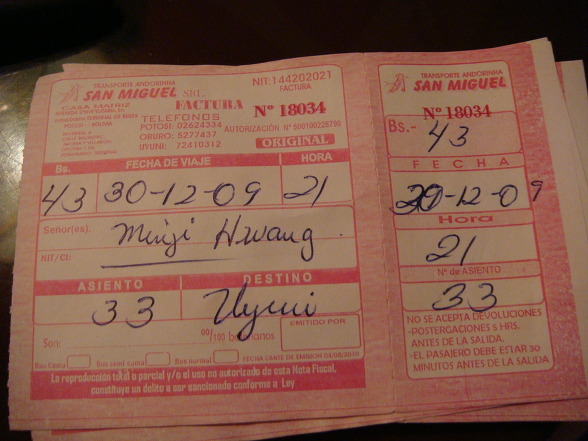 TRANSPORTE ANDORINHA
SAN MIGUEL SRL.
NIT: 144202021
FACTURA
CASA MATRIZ
FACTURA
Nº 18034
POTOSI - BOLIVIA
TELEFONOS
POTOSI: 02624334
ORURO: 5277437
UYUNI: 72410312
AUTORIZACIÓN Nº
ORIGINAL
Bs. FECHA DE VIAJE HORA
43 30-12-09 21
Señor(es). Minji Hwang
NIT/CI:
ASIENTO DESTINO
33 Uyuni
Son: 00/100 bolivianos
EMITIDO POR
Bus Cama Bus semi cama Bus normal
La reproducción total o parcial y/o el uso no autorizado de esta Nota Fiscal,
constituye un delito a ser sancionado conforme a Ley
TRANSPORTE ANDORINHA
SAN MIGUEL
Nº 18034
Bs.- 43
FECHA
30-12-09
Hora
21
Nº de ASIENTO
33
NO SE ACEPTA DEVOLUCIONES
-POSTERGACIONES 5 HRS.
ANTES DE LA SALIDA.
-EL PASAJERO DEBE ESTAR 30
MINUTOS ANTES DE LA SALIDA